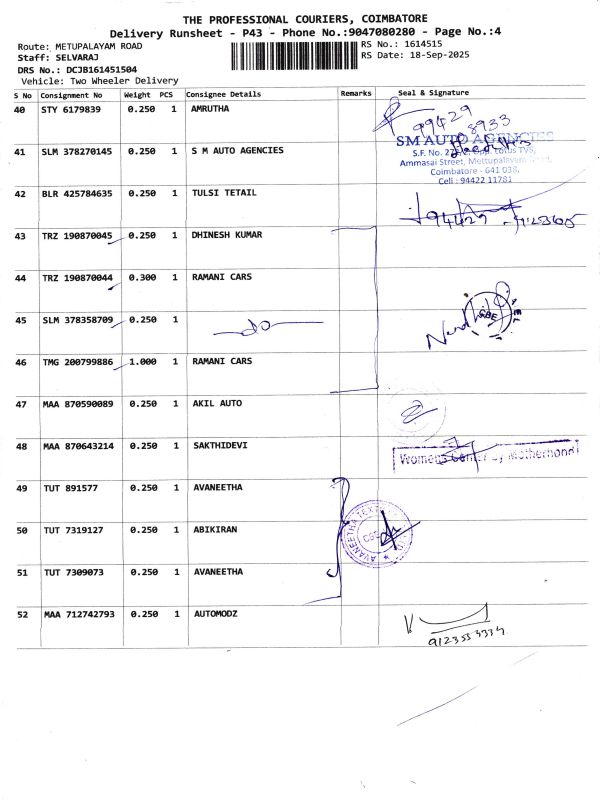 THE PROFESSIONAL COURIERS, COIMBATORE
Delivery Runsheet - P43 - Phone No.:9047080280 - Page No.:4
Route: METUPALAYAM ROAD
RS No.: 1614515
Staff: SELVARAJ
RS Date: 18-Sep-2025
DRS No.: DCJB161451504
Vehicle: Two Wheeler Delivery
S No Consignment No Weight PCS Consignee Details Remarks Seal & Signature
40 STY 6179839 0.250 1 AMRUTHA
99429
18933
41 SLM 378270145 0.250 1 S M AUTO AGENCIES
SM AUTO AGENCIES
S.F. No. Opp. Lotus TVS,
Ammasai Street, Mettupalayam Road,
Coimbatore - 641 038.
Cell : 94422 11781
42 BLR 425784635 0.250 1 TULSI TETAIL
43 TRZ 190870045 0.250 1 DHINESH KUMAR
44 TRZ 190870044 0.300 1 RAMANI CARS
45 SLM 378358709 0.250 1 -do-
46 TMG 200799886 1.000 1 RAMANI CARS
47 MAA 870590089 0.250 1 AKIL AUTO
48 MAA 870643214 0.250 1 SAKTHIDEVI
Womens Center by Motherhood
49 TUT 891577 0.250 1 AVANEETHA
50 TUT 7319127 0.250 1 ABIKIRAN
51 TUT 7309073 0.250 1 AVANEETHA
52 MAA 712742793 0.250 1 AUTOMODZ